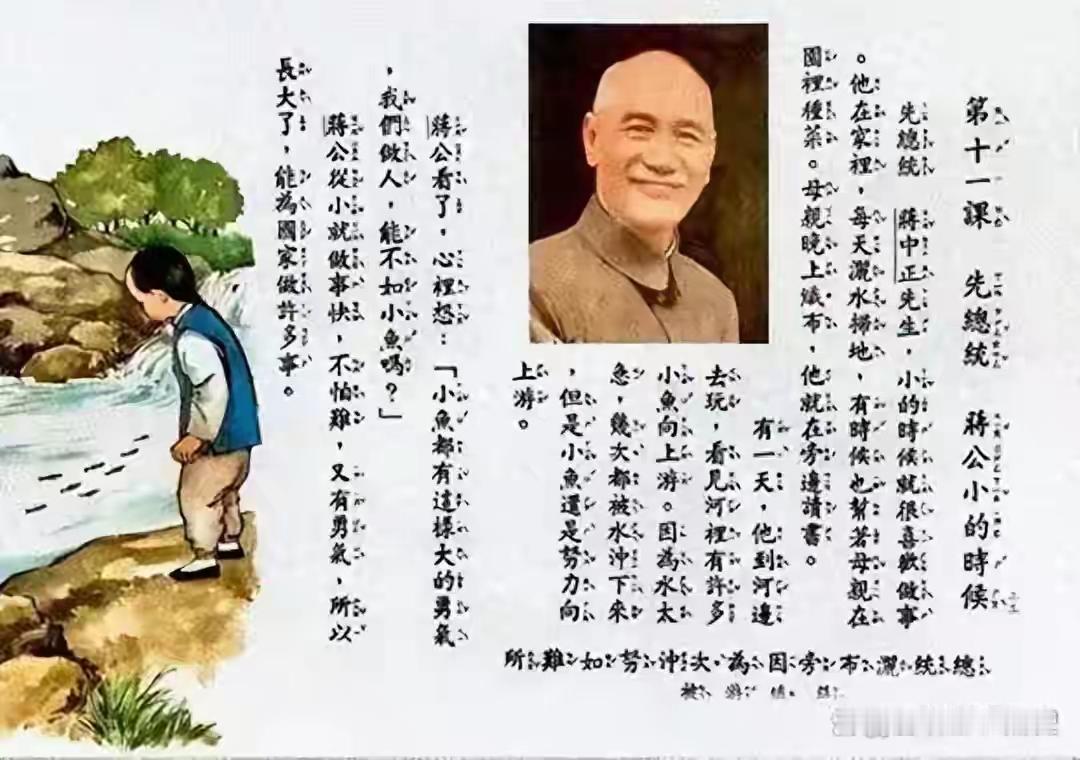 第十一課　先總統　蔣公小的時候
先總統　蔣中正先生，小的時候就很喜歡做事
。他在家裡，每天灑水掃地，有時候也幫著母親在
園裡種菜。母親晚上織布，他就在旁邊讀書。
有一天，他到河邊
去玩，看見河裡有許多
小魚向上游。因為水太
急，幾次都被水沖下來
，但是小魚還是努力向
上游。
蔣公看了，心裡想：「小魚都有這樣大的勇氣
，我們做人，能不如小魚嗎？」
蔣公從小就做事快，不怕難，又有勇氣，所以
長大了，能為國家做許多事。
總統灑布旁因為次沖努如難所
被游